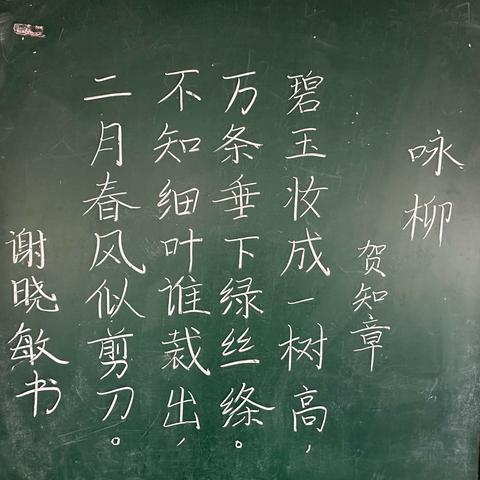 咏柳
贺知章
碧玉妆成一树高，
万条垂下绿丝绦。
不知细叶谁裁出，
二月春风似剪刀。
谢晓敏书